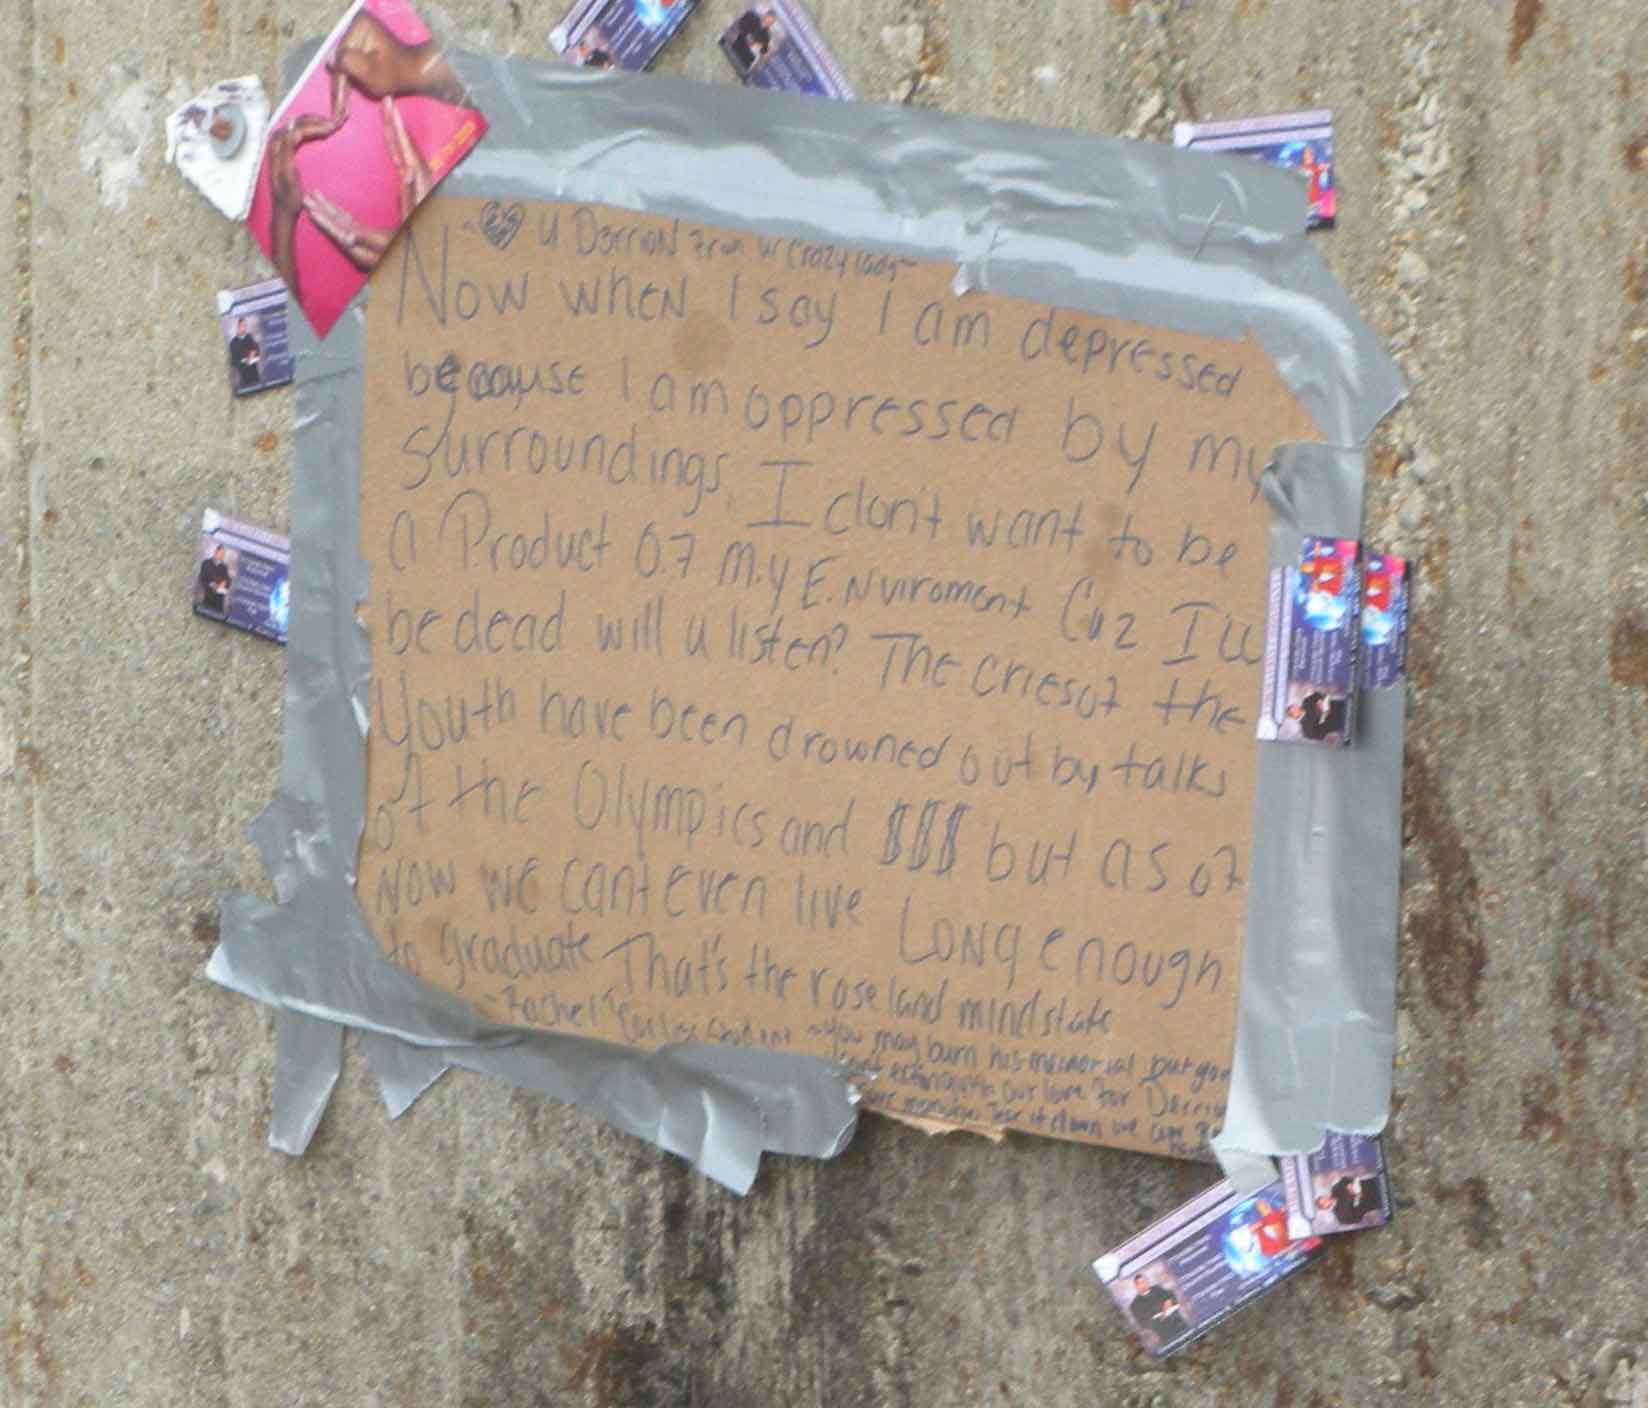 U Derrion From ur Crazy lady~
Now when I say I am depressed
because I am oppressed by my
surroundings. I don't want to be
a Product Of My Enviroment Cuz I'll
be dead will u listen? The cries of the
Youth have been drowned out by talks
of the Olympics and $$$ but as of
Now we cant even live Long enough
to graduate That's the roseland mindstate
Rachel Corliss Student ~You may burn his memorial but you
cant extinguish our love for Derrion
our memories. Tear it down we can